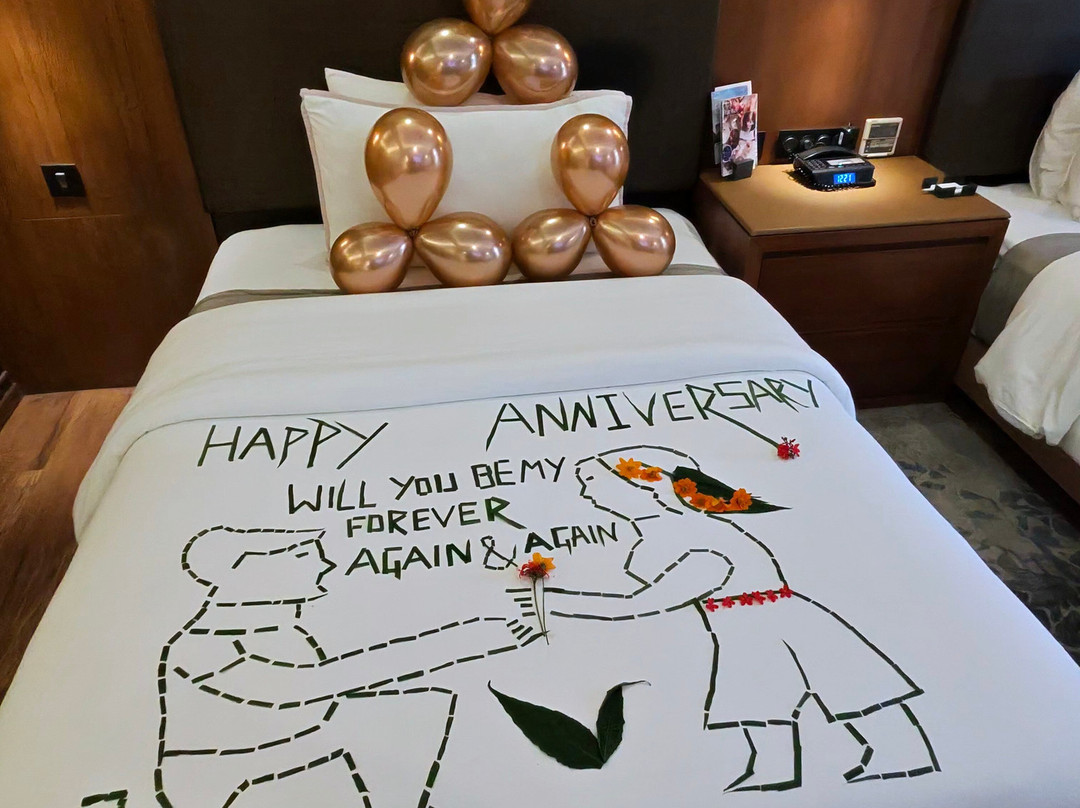 HAPPY ANNIVERSARY
WILL YOU BE MY
FOREVER
AGAIN & AGAIN
1221